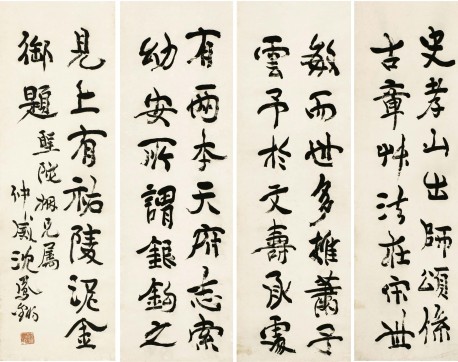 史孝山出師頌係
古章艸法在宋世
敏而世多推蕭子
雲予於文壽承處
有兩本天府志索
幼安所謂銀鉤之
見上有祐陵泥金
御題
兄屬
仲威沈鳳